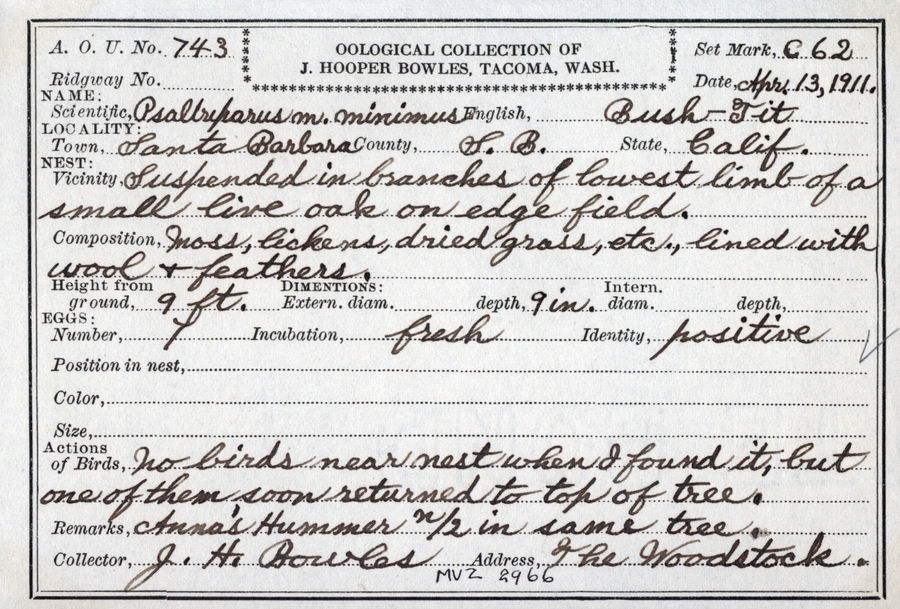 A. O. U. No. 743
OOLOGICAL COLLECTION OF
J. HOOPER BOWLES, TACOMA, WASH.
Set Mark, C 62
Ridgway No.
Date, Apr. 13, 1911.
NAME:
Scientific, Psaltriparus m. minimus English, Bush-Tit
LOCALITY:
Town, Santa Barbara County, S. B. State, Calif.
NEST:
Vicinity, Suspended in branches of lowest limb of a
small live oak on edge field.
Composition, Moss, lichens, dried grass, etc., lined with
wool + feathers.
Height from ground, 9 ft. DIMENTIONS: Extern. diam. depth, 9 in. Intern. diam. depth,
EGGS:
Number, 7 Incubation, fresh Identity, positive
Position in nest,
Color,
Size,
Actions of Birds, No birds near nest when I found it, but
one of them soon returned to top of tree.
Remarks, Anna's Hummer n/2 in same tree.
Collector, J. H. Bowles Address, The Woodstock.
MVZ 2966